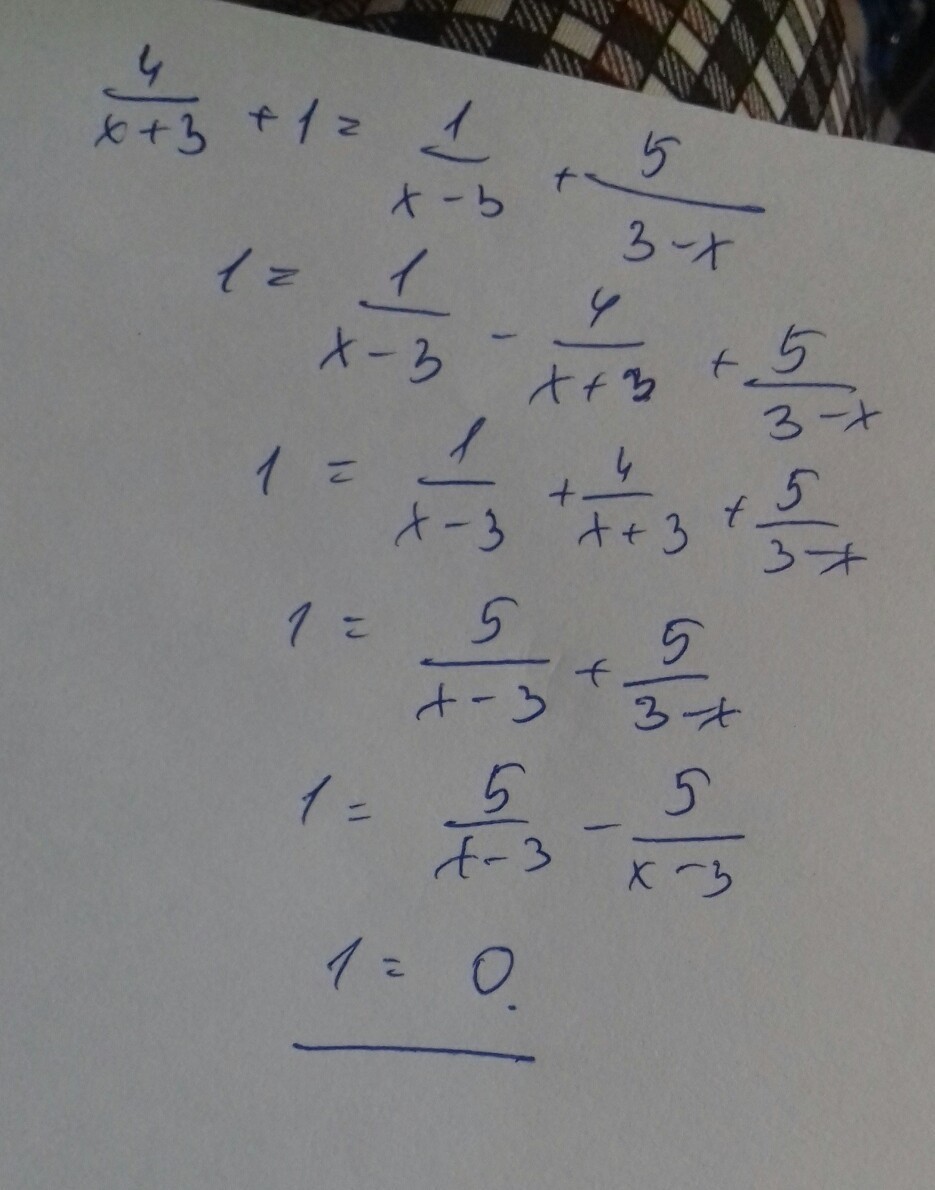 4/(x+3) + 1 = 1/(x-3) + 5/(3-x)
1 = 1/(x-3) - 4/(x+3) + 5/(3-x)
1 = 1/(x-3) + 4/(x+3) + 5/(3-x)
1 = 5/(x-3) + 5/(3-x)
1 = 5/(x-3) - 5/(x-3)
1 = 0.